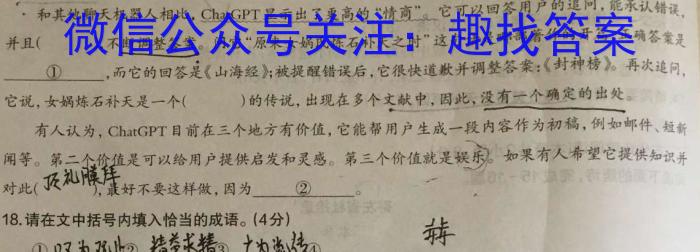 和其他聊天机器人相比, ChatGPT显示出了更高的“情商”。它可以回答用户的追问,能承认错误,
并且( 不断调整答案。 “女娲炼石补天之
微信公众号关注:趣找答案
答案是
① ,而它的回答是《山海经》;被提醒错误后,它很快道歉并调整答案:《封神榜》。再次追问,
它说,女娲炼石补天是一个( )的传说,出现在多个文献中,因此,没有一个确定的出处。
有人认为,ChatGPT目前在三个地方有价值,它能帮用户生成一段内容作为初稿,例如邮件、短新
闻等。第二个价值是可以给用户提供启发和灵感。第三个价值就是娱乐。如果有人希望它提供知识并
对此( ),最好不要这样做,因为 ② 。
18.请在文中括号内填入恰当的成语。(4分)
① ② 精益求精③ ④